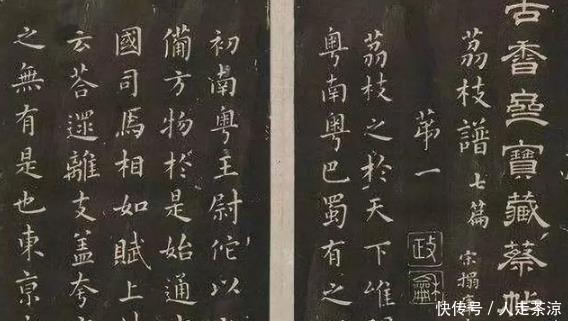 古香齋寶藏蔡帖
荔枝譜 七篇 宗搨
苐一
政和
荔枝之於天下唯
粤南粤巴蜀有之
初南粤主尉佗以
備方物於是始通
國司馬相如賦上
云荅遝離支盖夸
之無有是也東京
快传号/人走茶涼